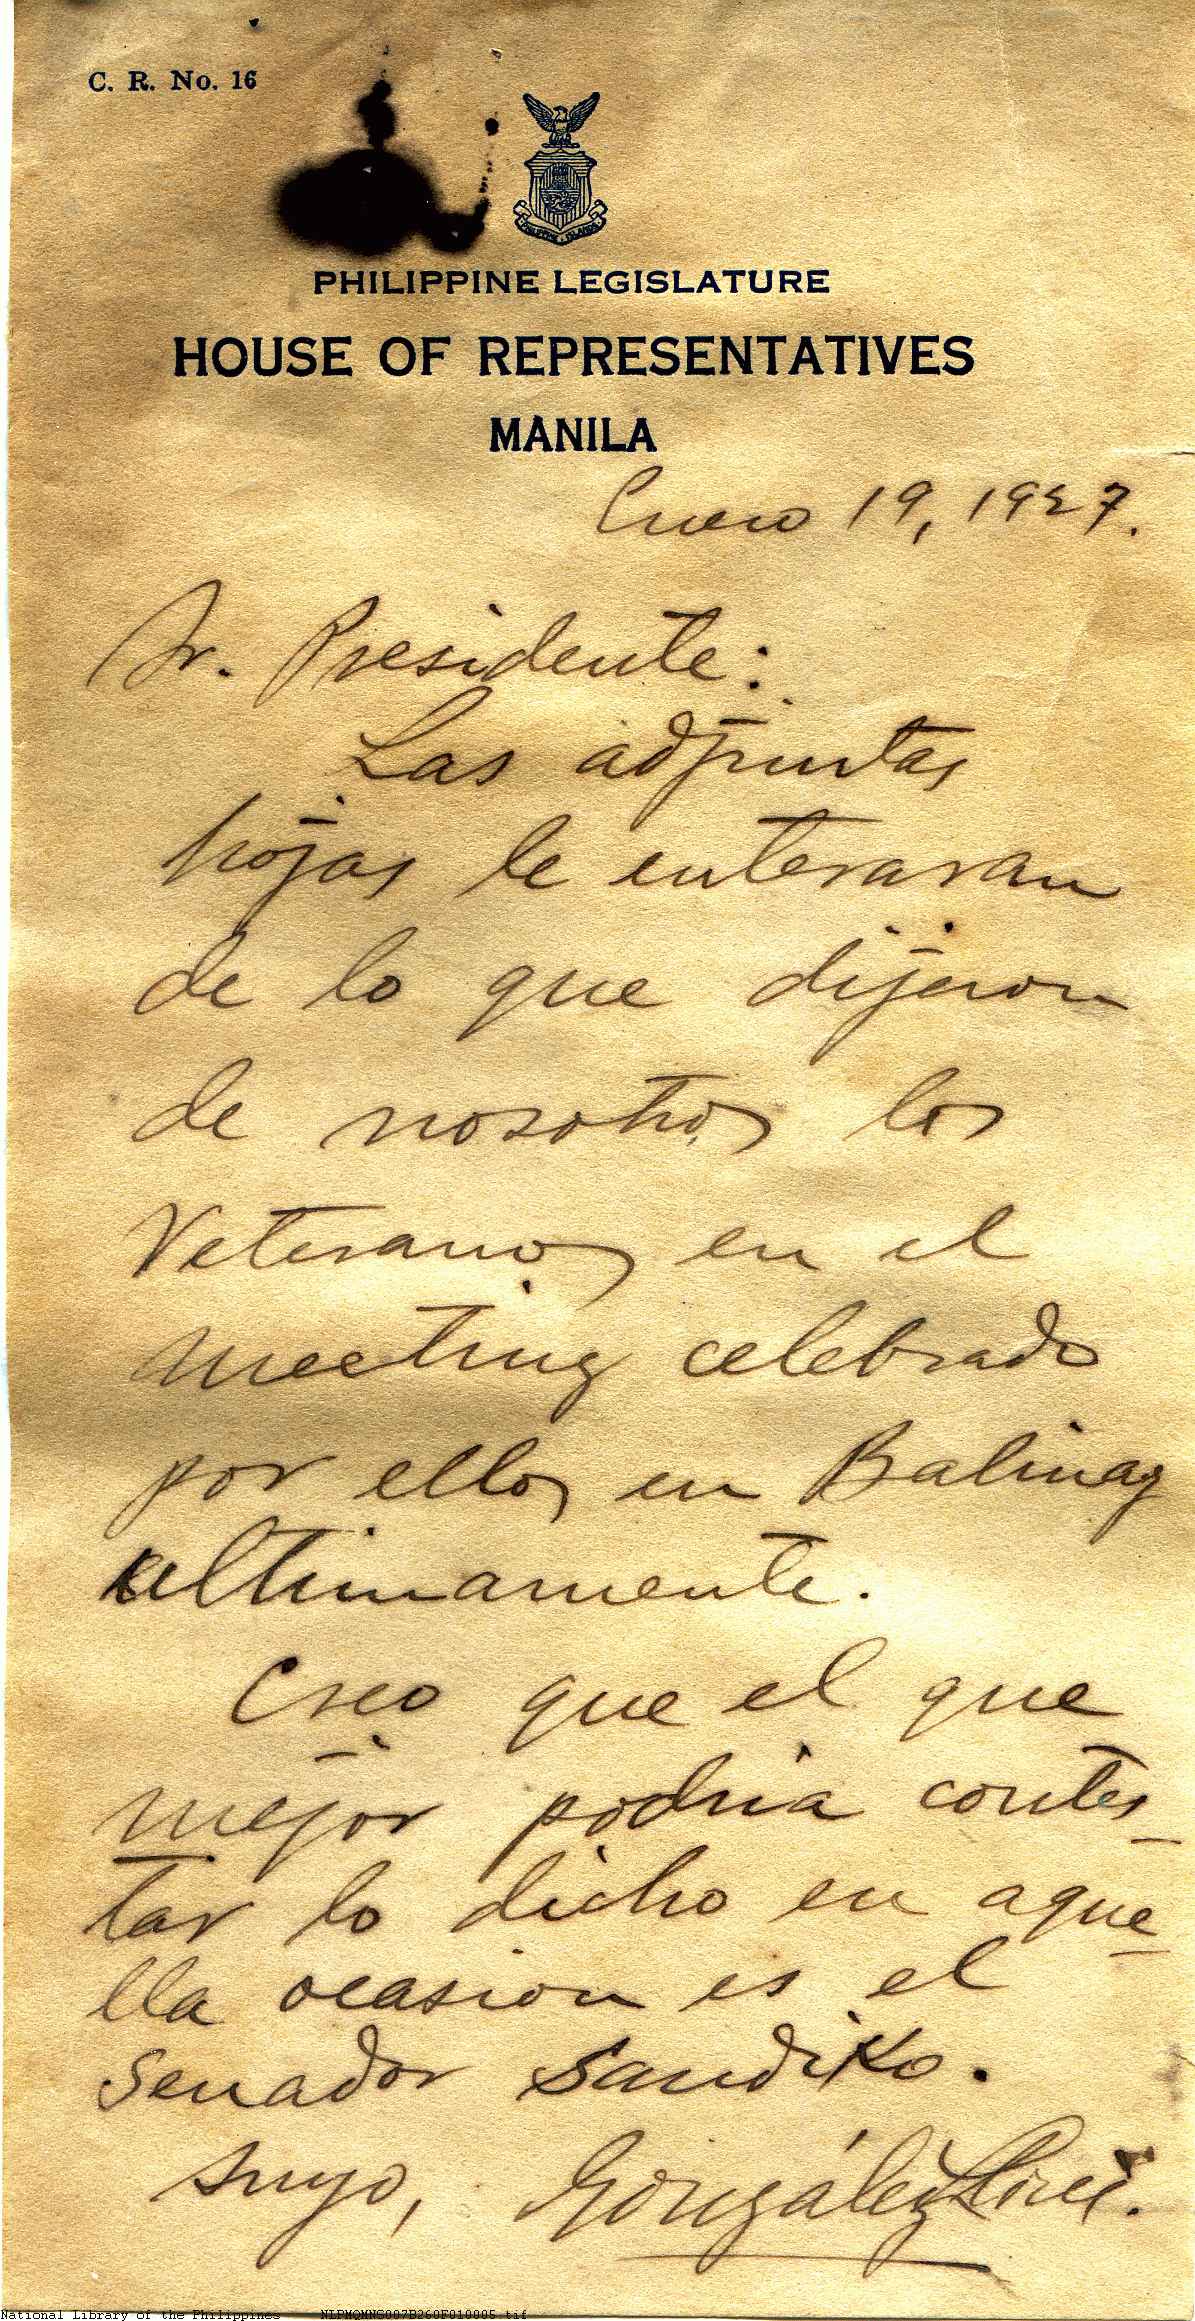 C. R. No. 16
PHILIPPINE ISLANDS
PHILIPPINE LEGISLATURE
HOUSE OF REPRESENTATIVES
MANILA
Enero 19, 1927.
Sr. Presidente:
Las adjuntas
hojas le enteraran
de lo que dijeron
de nosotros los
Veteranos en el
meeting celebrado
por ellos en Baliuag
ultimamente.
Creo que el que
mejor podria contes-
tar lo dicho en aque-
lla ocasion es el
senador Sandiko.
Suyo, González
National Library of the Philippines NLPMQMNG007B260F010005.tif